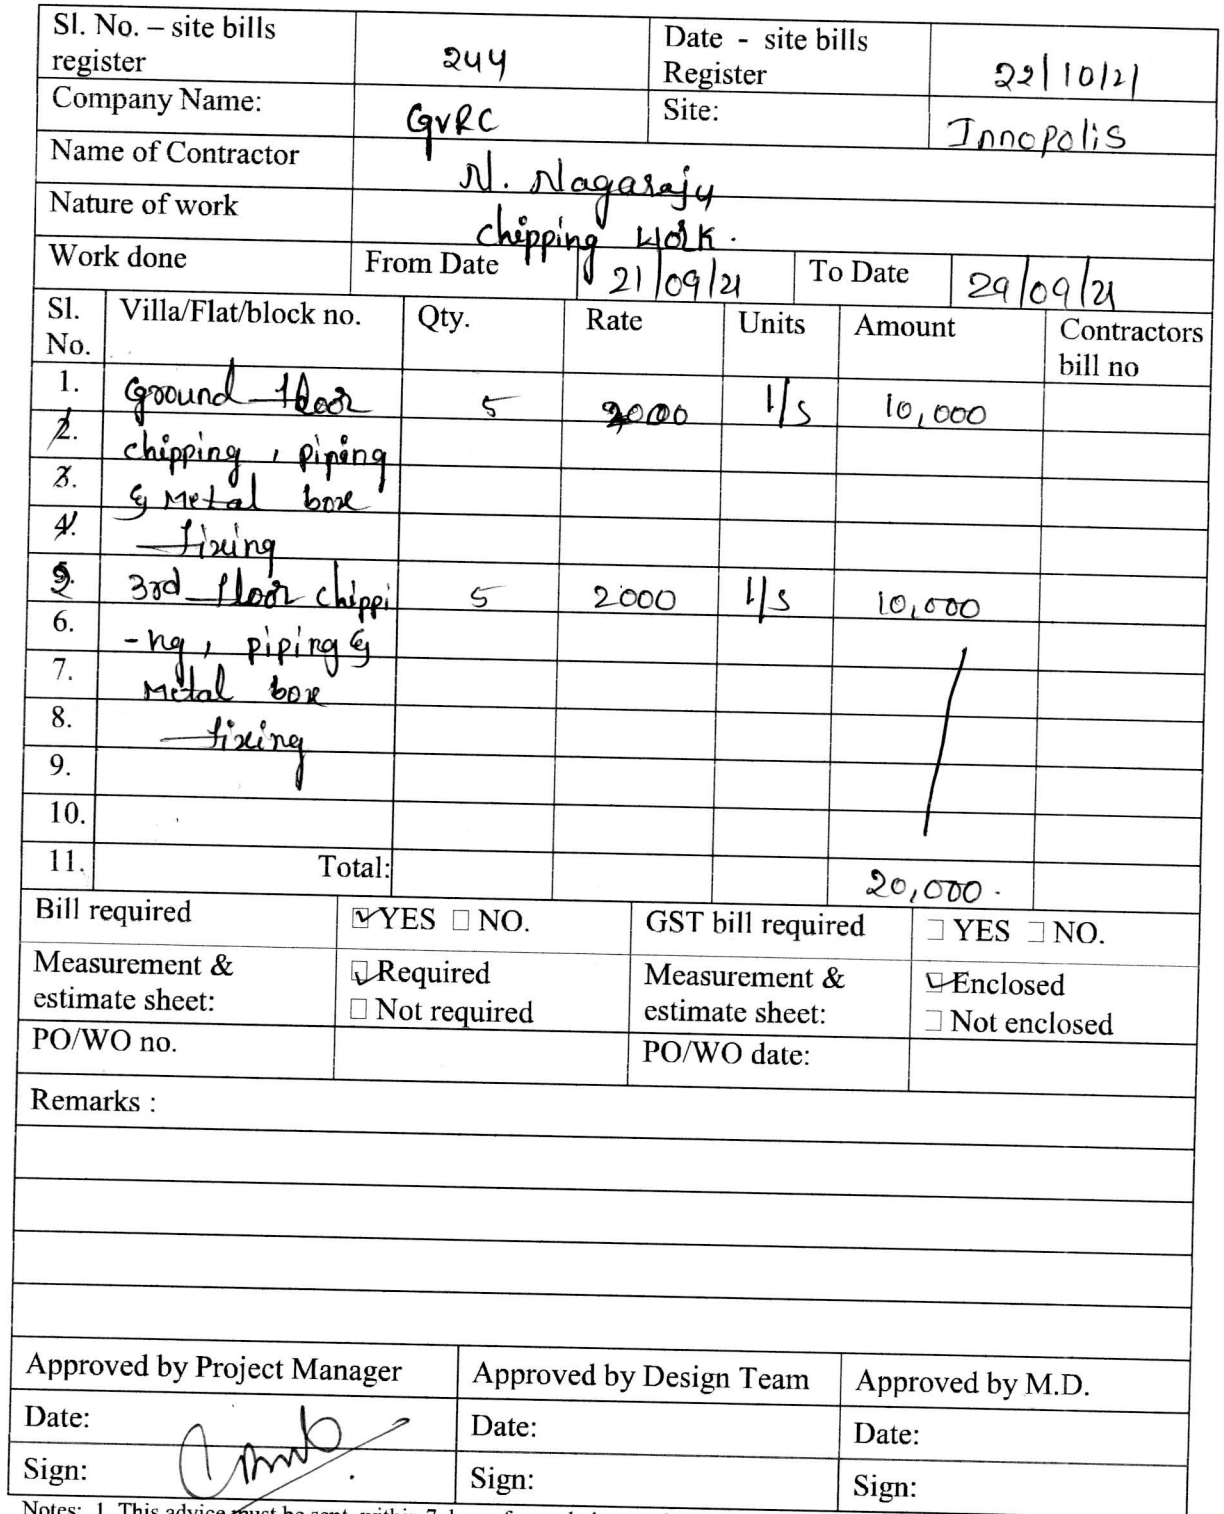 Sl. No. – site bills register 244 Date - site bills Register 22/10/21
Company Name: GVRC Site: Innopolis
Name of Contractor N. Nagaraju
Nature of work chipping work.
Work done From Date 21/09/21 To Date 29/09/21
Sl. No. Villa/Flat/block no. Qty. Rate Units Amount Contractors bill no
1. Ground floor 5 2000 l/s 10,000
2. chipping, piping
3. & Metal box
4. fixing
2 3rd floor chippi 5 2000 l/s 10,000
6. -ng, piping &
7. Metal box
8. fixing
9.
10.
11. Total: 20,000.
Bill required YES NO. GST bill required YES NO.
Measurement & estimate sheet: Required Not required Measurement & estimate sheet: Enclosed Not enclosed
PO/WO no. PO/WO date:
Remarks :
Approved by Project Manager Approved by Design Team Approved by M.D.
Date: Date: Date:
Sign: Sign: Sign:
Notes: 1. This advice must be sent within 7 days